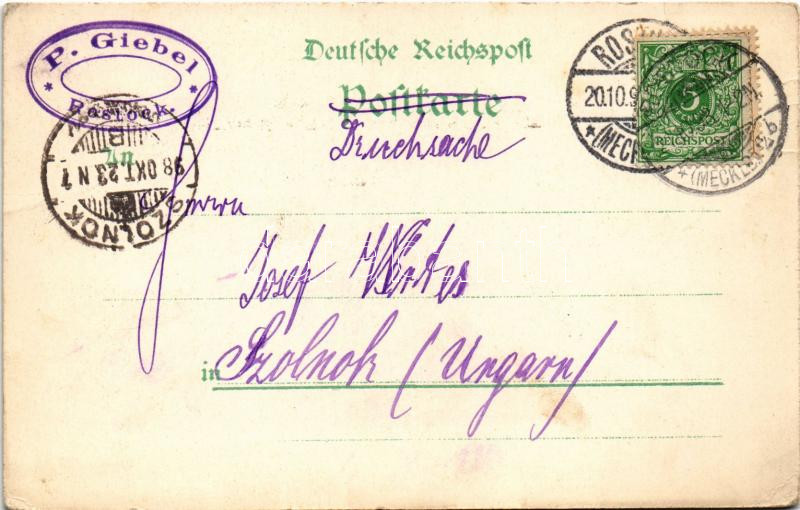 P. Giebel
* *
Rostock.
Deutsche Reichspost
Postkarte
Drucksache
An
Herrn
Josef Wirtes
in Szolnok (Ungarn)
SZOLNOK
98 OKT 23 N 7
B
ROSTOCK
20.10.9
*(MECKL
5
REICHSPOST
*(MECKLENB)